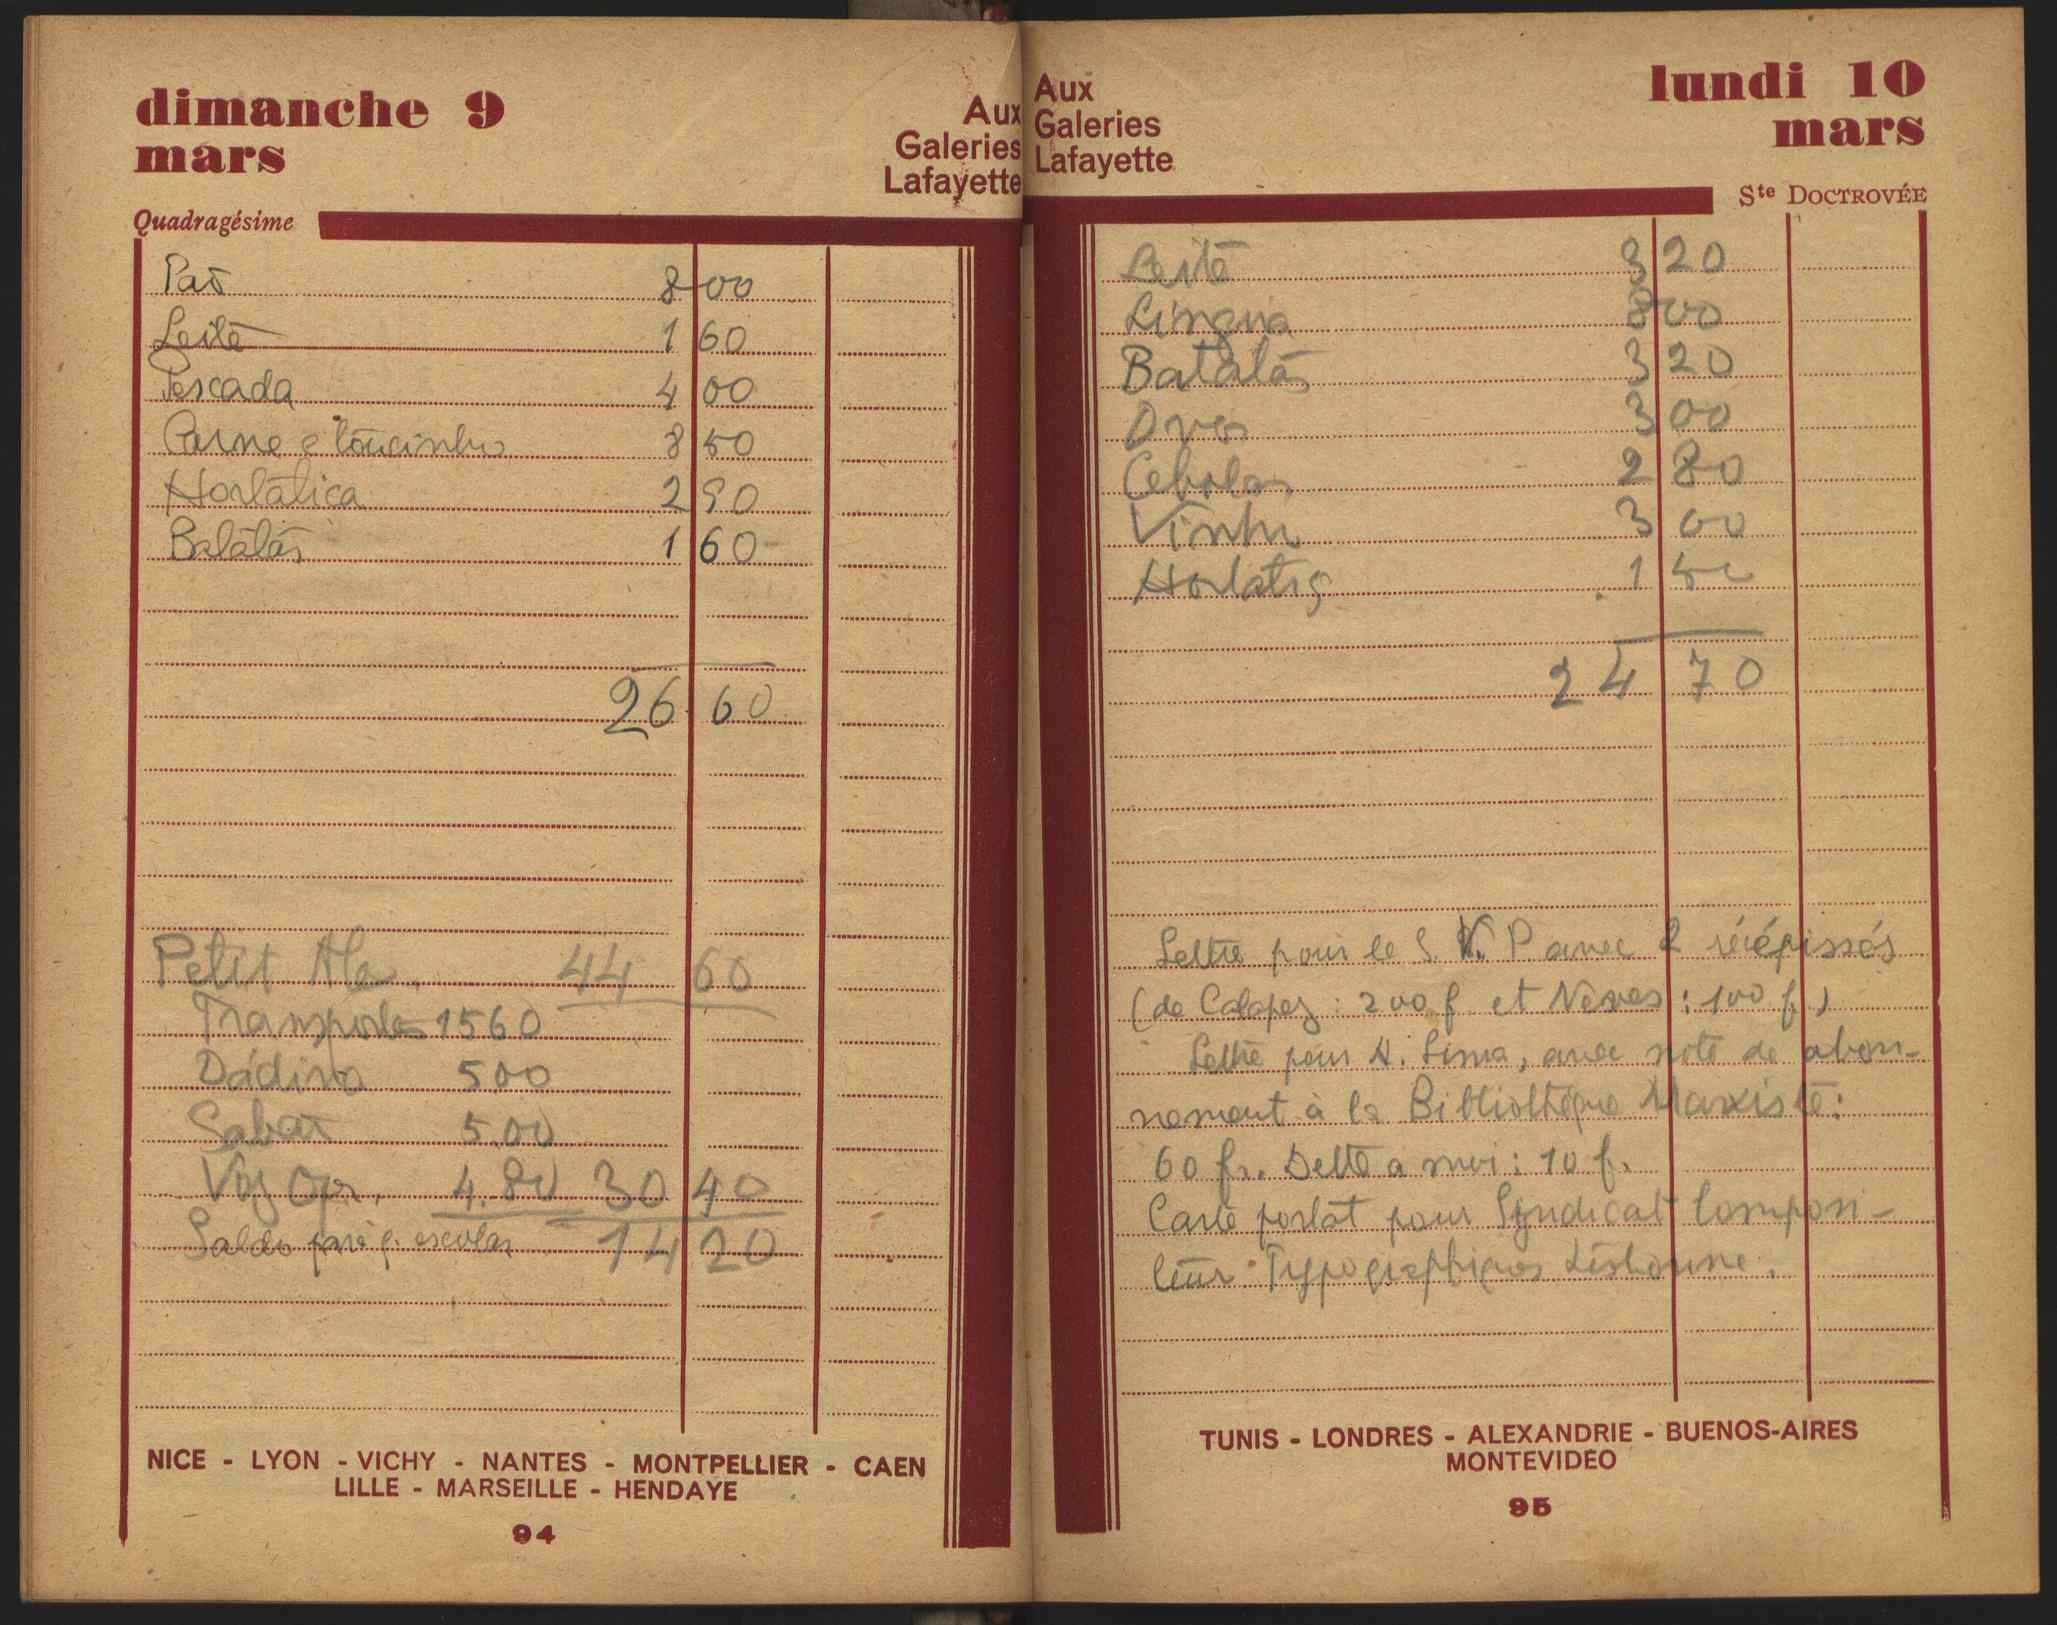 dimanche 9
mars
Aux
Galeries
Lafayette
Quadragésime
Pão 8 00
Leite 1 60
Pescada 4 00
Carne e toucinho 8 50
Hortaliça 2 90
Batatas 1 60
26 60
Petit 44 60
Transportes 15 60
Dádiva 5 00
Sabão 5.00
Voz Op. 4.80 30 40
Saldo escolar 14 20
NICE - LYON - VICHY - NANTES - MONTPELLIER - CAEN
LILLE - MARSEILLE - HENDAYE
94
Aux
Galeries
Lafayette
lundi 10
mars
Ste DOCTROVÉE
Leite 3 20
Lingua 8 00
Batatas 3 20
Ovos 3 00
Cebolas 2 80
Vinho 3 00
Hortaliç 1 50
24 70
Lettre pour le S. V. P avec 2 récépissés
(de Calapez : 200 f. et Neves : 100 f.)
Lettre pour A. Lima, avec note de abon-
nement à la Bibliothèque Marxiste:
60 fr. Dette a moi : 10 f.
Carte postat pour Syndicat Composi-
teur Typographiques Lisbonne.
TUNIS - LONDRES - ALEXANDRIE - BUENOS-AIRES
MONTEVIDEO
95